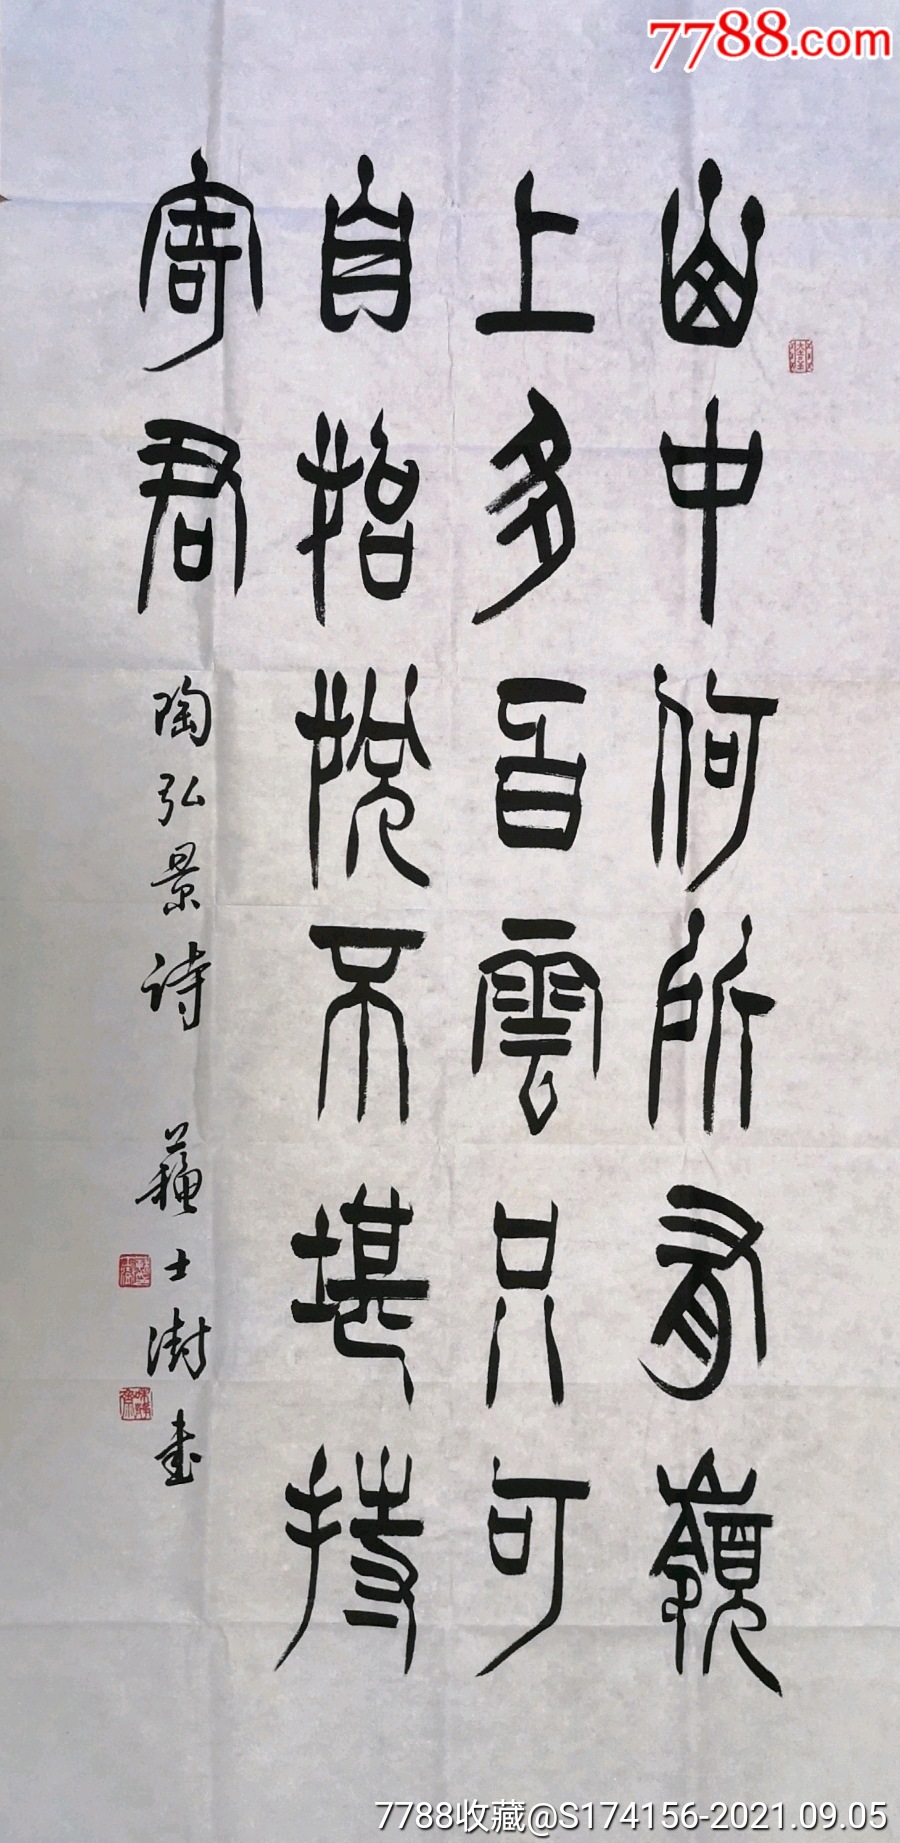 7788.com
山中何所有嶺
上多百雲只可
自怡悅不堪持
寄君
陶弘景诗 蘇士澍書
7788收藏@S174156-2021.09.05